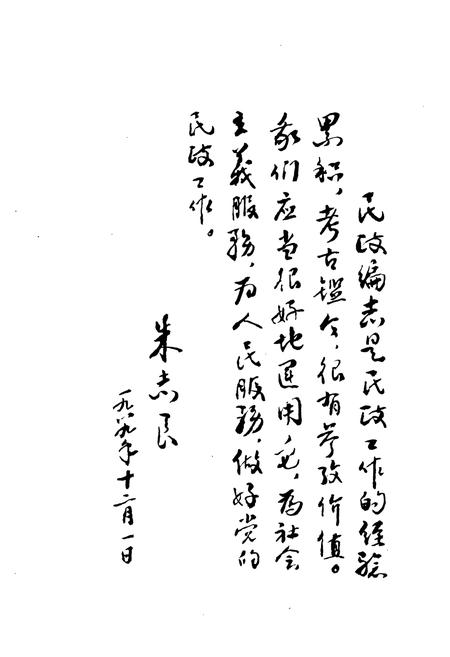 民政编志是民政工作的经验
累积，考古鑑今，很有参考价值。
我们应当很好地运用它，為社会
主義服務，为人民服務，做好党的
民政工作。
朱志良
一九八九年十二月一日